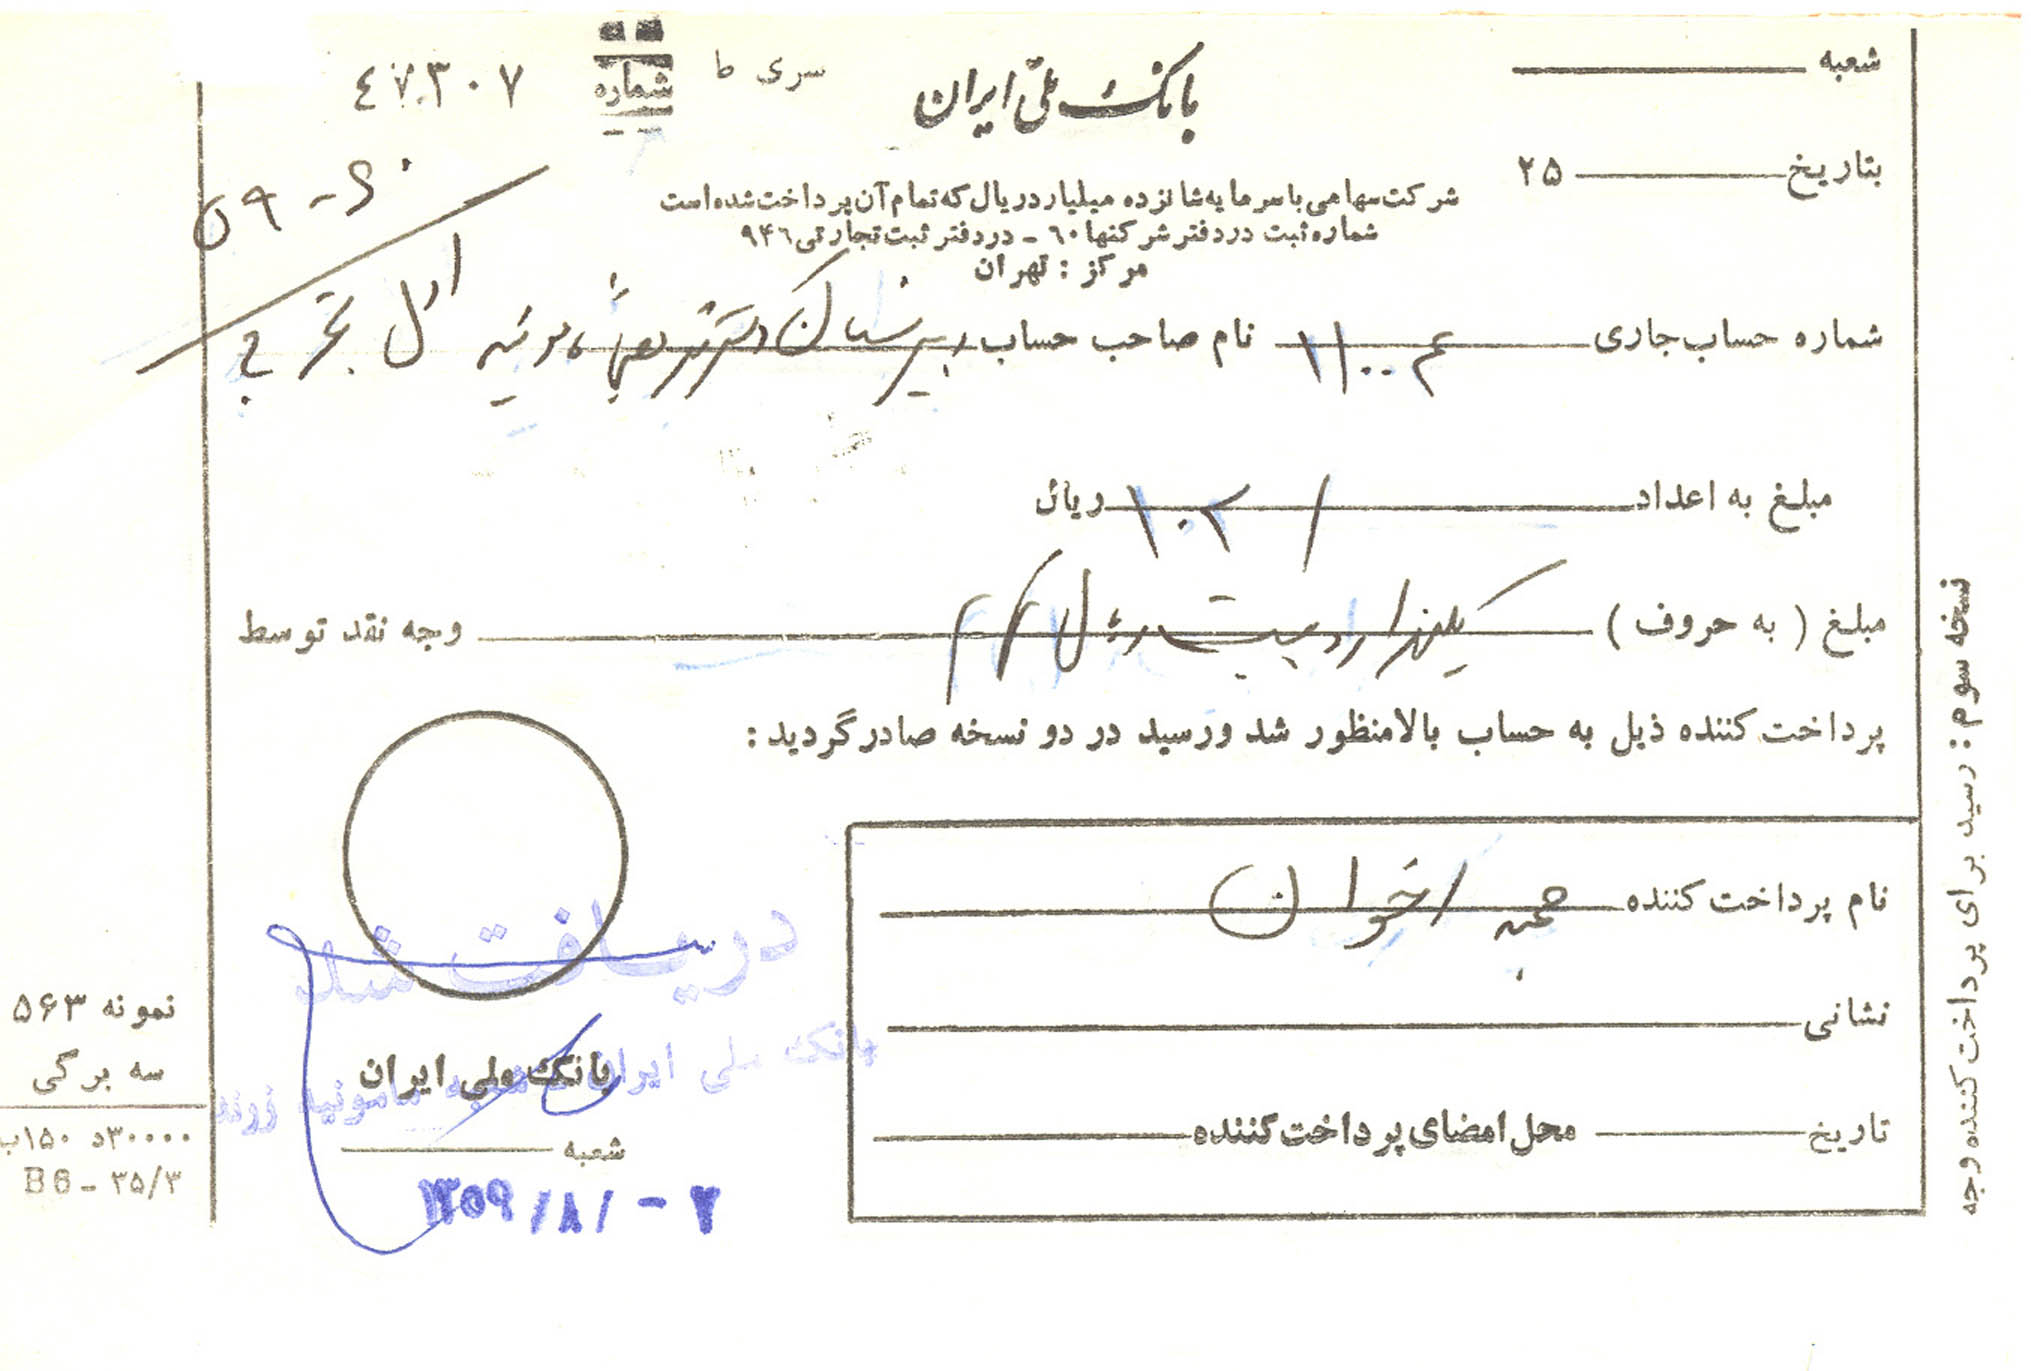 شعبه
بانک ملّی ایران
سری ط
شماره
٤٧٣٠٧
بتاریخ ۲۵
شرکت سهامی با سرمایه شانزده میلیارد ریال که تمام آن پرداخت شده است
شماره ثبت در دفتر شرکتها ٦٠ ـ در دفتر ثبت تجارتی ۹۴٦
مرکز : تهران
شماره حساب جاری نام صاحب حساب دبیرستان دخترانه
مبلغ به اعداد ریال
مبلغ ( به حروف ) یکهزار ریال وجه نقد توسط
پرداخت کننده ذیل به حساب بالا منظور شد و رسید در دو نسخه صادر گردید :
نام پرداخت کننده اخوان
نشانی
تاریخ محل امضای پرداخت کننده
دریافت شد
بانک ملی ایران شعبه مامونیه زرند
بانک ملی ایران
شعبه
۱۳۵۹/۸/-۲
نمونه ۵۶۳
سه برگی
۳۰۰۰۰د ۱۵۰ب
B6 ـ ۳۵/۳
نسخه سوم : رسید برای پرداخت کننده وجه